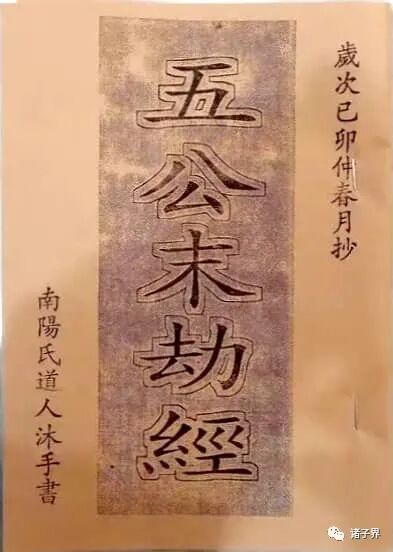 歲次己卯仲春月抄
五公末劫經
南陽氏道人沐手書
诸子界